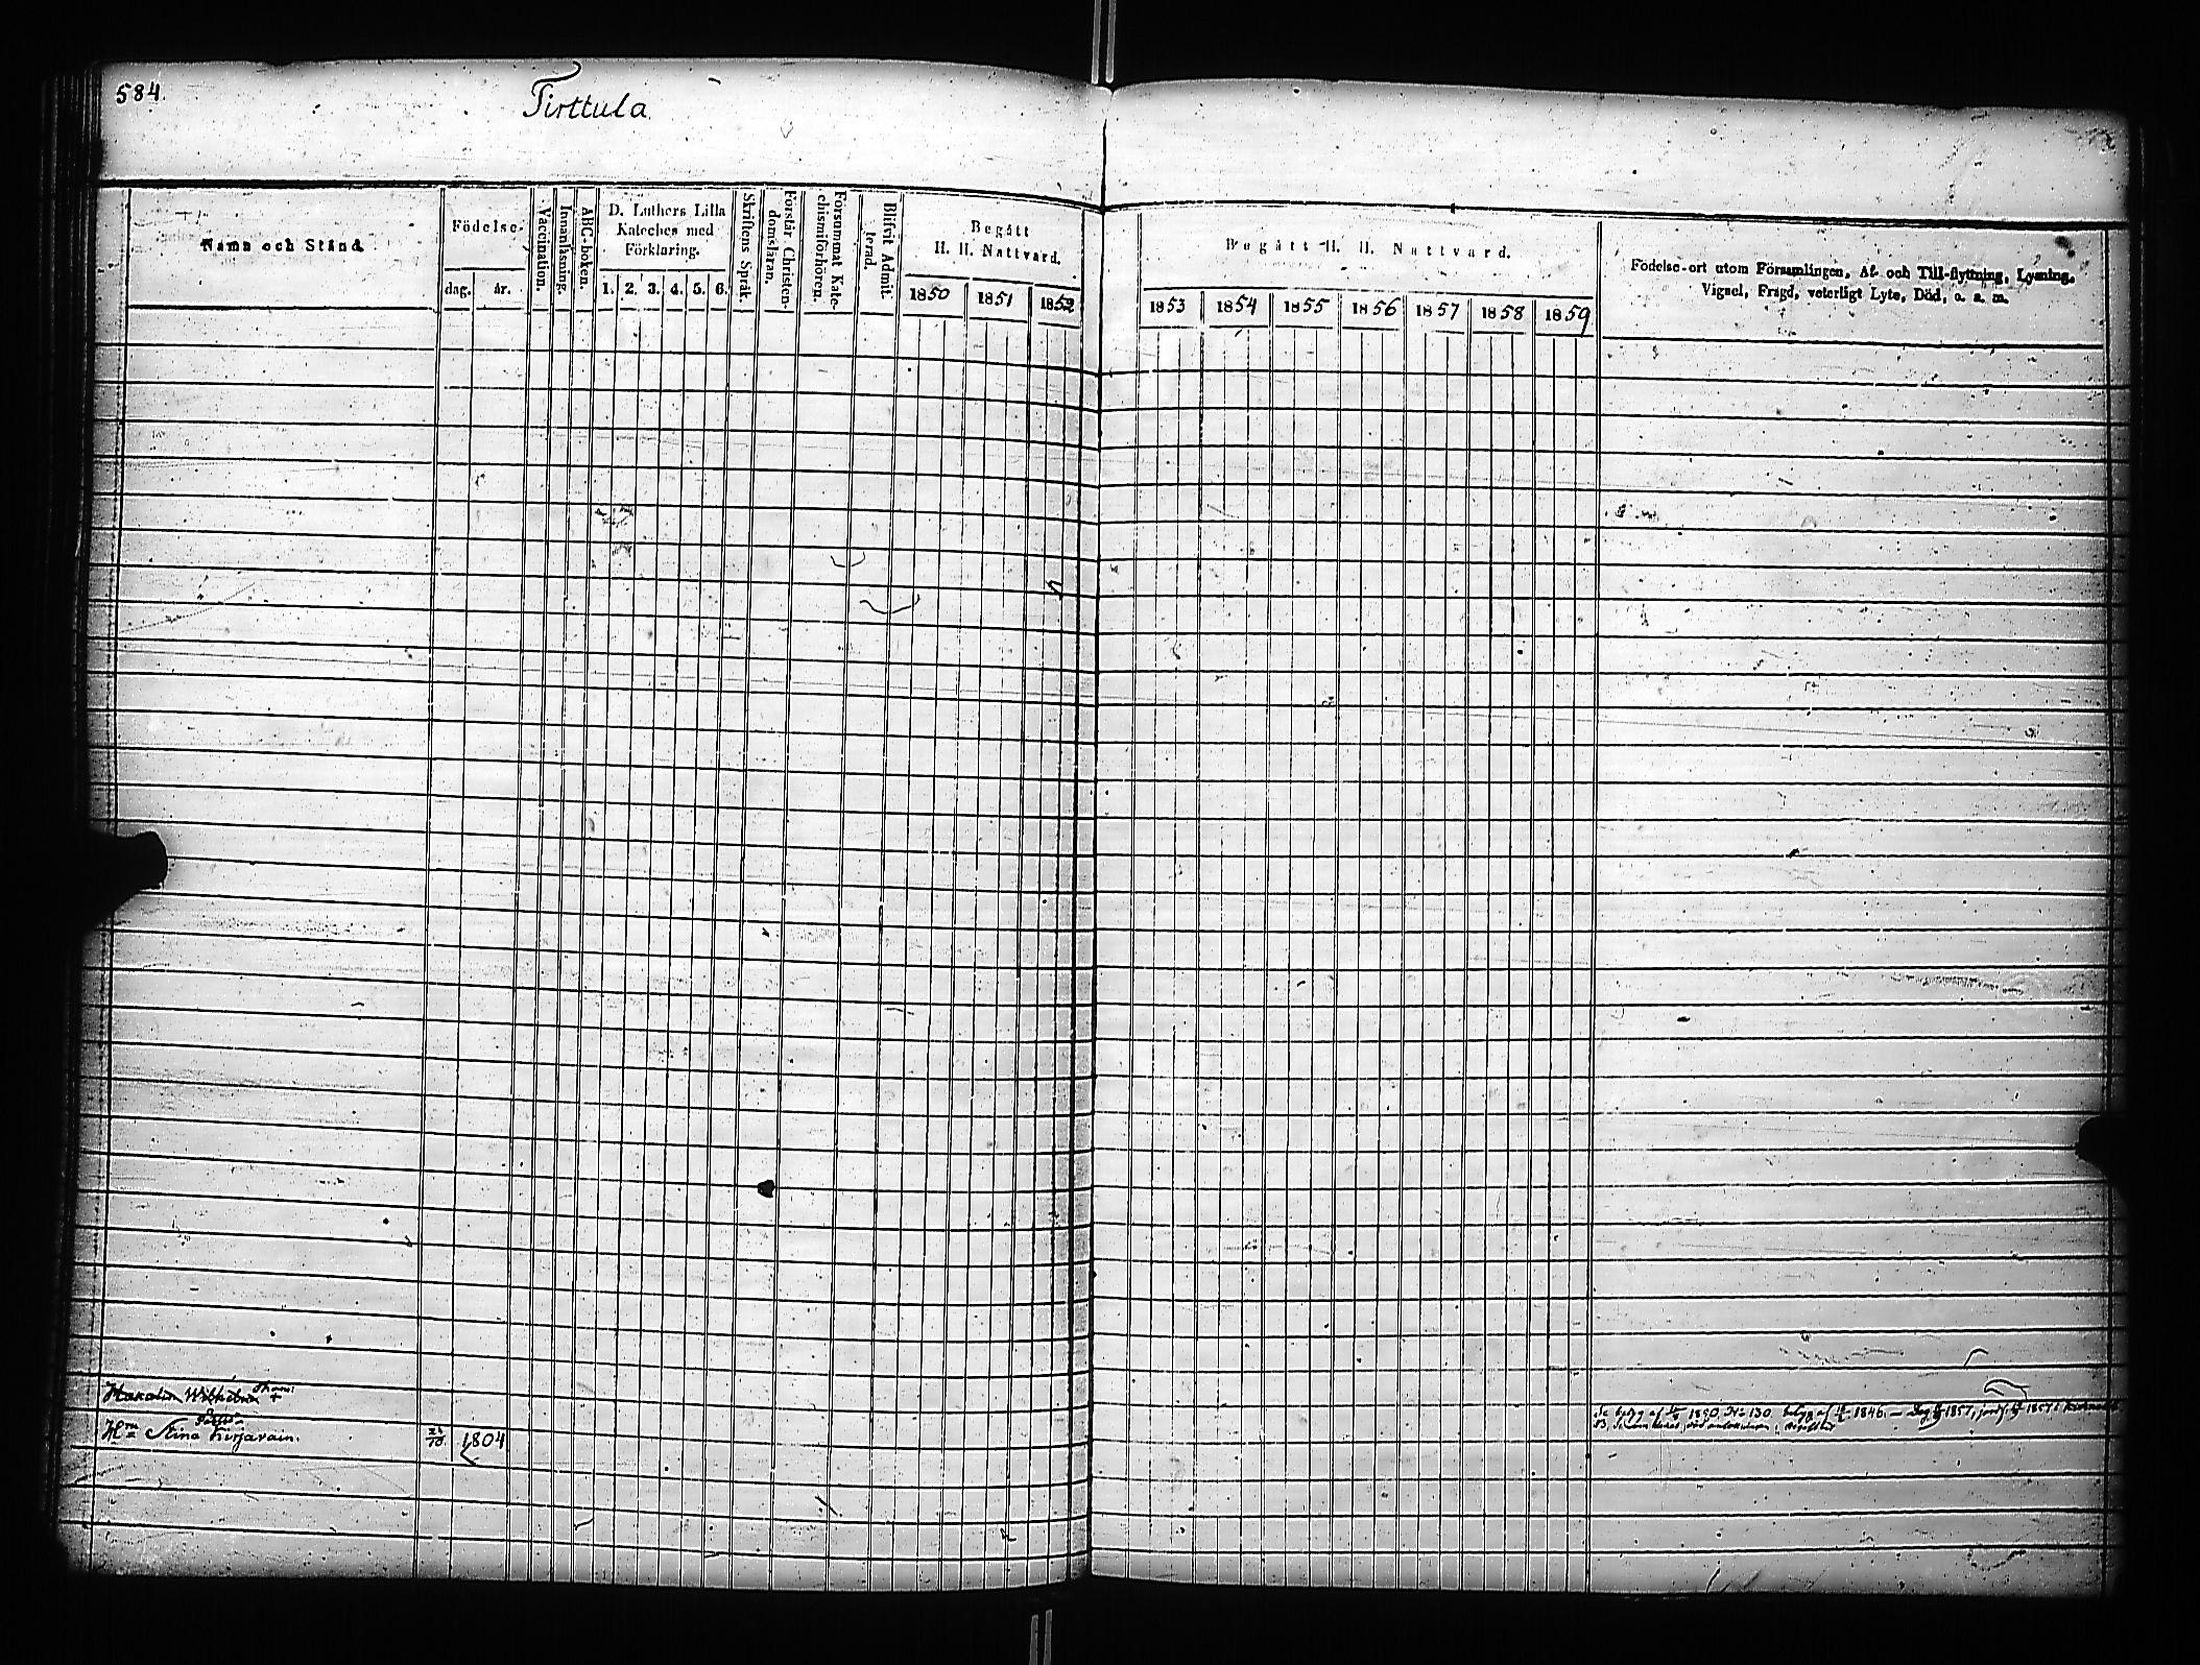 584.
Tirttula
Namn och Stånd.
Födelse-
dag.
år.
Vaccination.
Innanläsning.
ABC-boken.
D. Luthers Lilla
Kateches med
Förklaring.
1. 2. 3. 4. 5. 6.
Skriftens Språk.
Förstår Christen-
domsläran.
Försummat Kate-
chismiförhören.
Blifvit Admit-
terad.
Begått
H. H. Nattvard.
1850 1851 1852
Begått H. H. Nattvard.
1853 1854 1855 1856 1857 1858 1859
Födelse-ort utom Församlingen, Af- och Till-flyttning, Lysning,
Vigsel, Frägd, veterligt Lyte, Död, o. s. m.
Wilhelm
1890 N:o 130 1846. 1857, 1857
Stina
1804